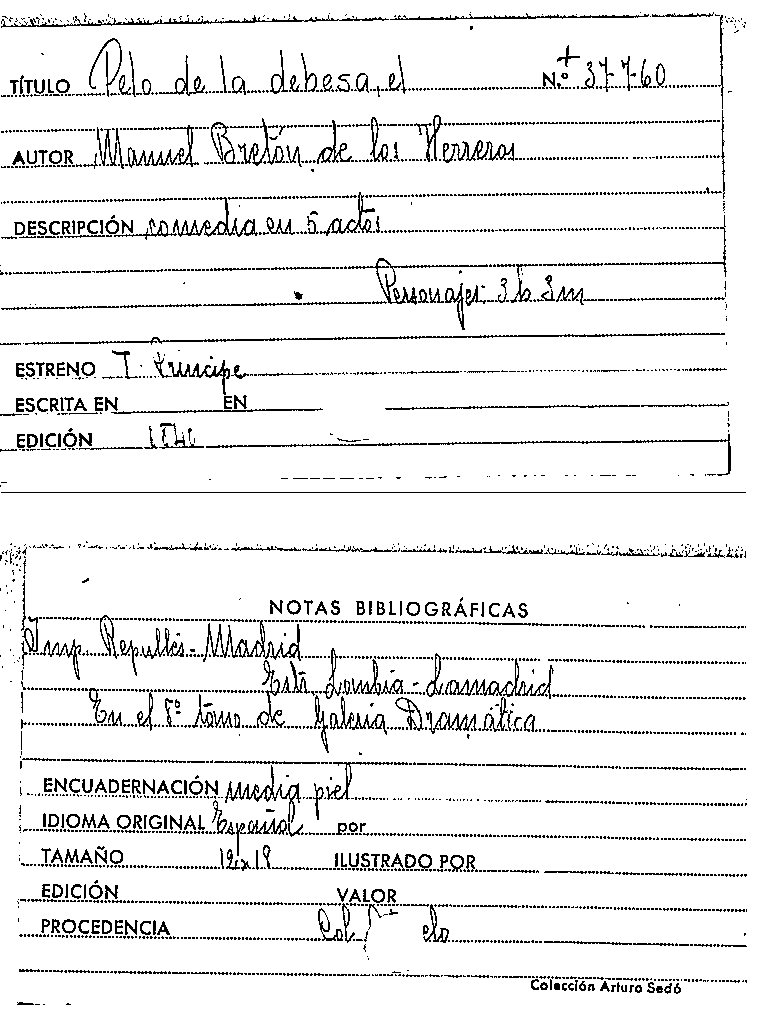 TÍTULO Pelo de la debesa, el N.º 37-7-60
AUTOR Manuel Bretón de los Herreros
DESCRIPCIÓN comedia en 5 actos
Personajes: 3 h 3 m
ESTRENO T. Príncipe
ESCRITA EN EN
EDICIÓN
NOTAS BIBLIOGRÁFICAS
Imp Repullés - Madrid
Lombía - Lamadrid
En el 8º tomo de Galería Dramática
ENCUADERNACIÓN media piel
IDIOMA ORIGINAL Español por
TAMAÑO 12 x 18 ILUSTRADO POR
EDICIÓN VALOR
PROCEDENCIA Col
Colección Arturo Sedó